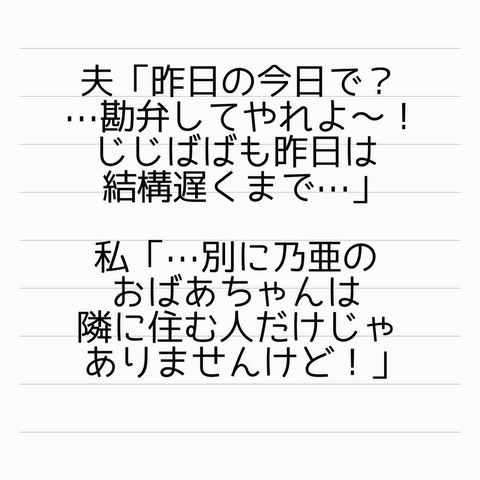 夫「昨日の今日で？
…勘弁してやれよ～！
じじばばも昨日は
結構遅くまで…」
私「…別に乃亜の
おばあちゃんは
隣に住む人だけじゃ
ありませんけど！」